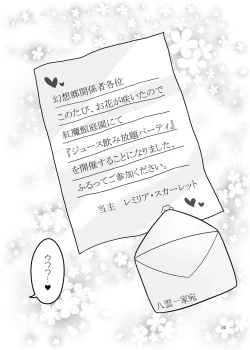 幻想郷関係者各位
このたび、お花が咲いたので
紅魔館庭園にて
『ジュース飲み放題パーティ』
を開催することになりました、
ふるってご参加ください。
当主　レミリア・スカーレット
八雲一家宛
ウフフ…♥